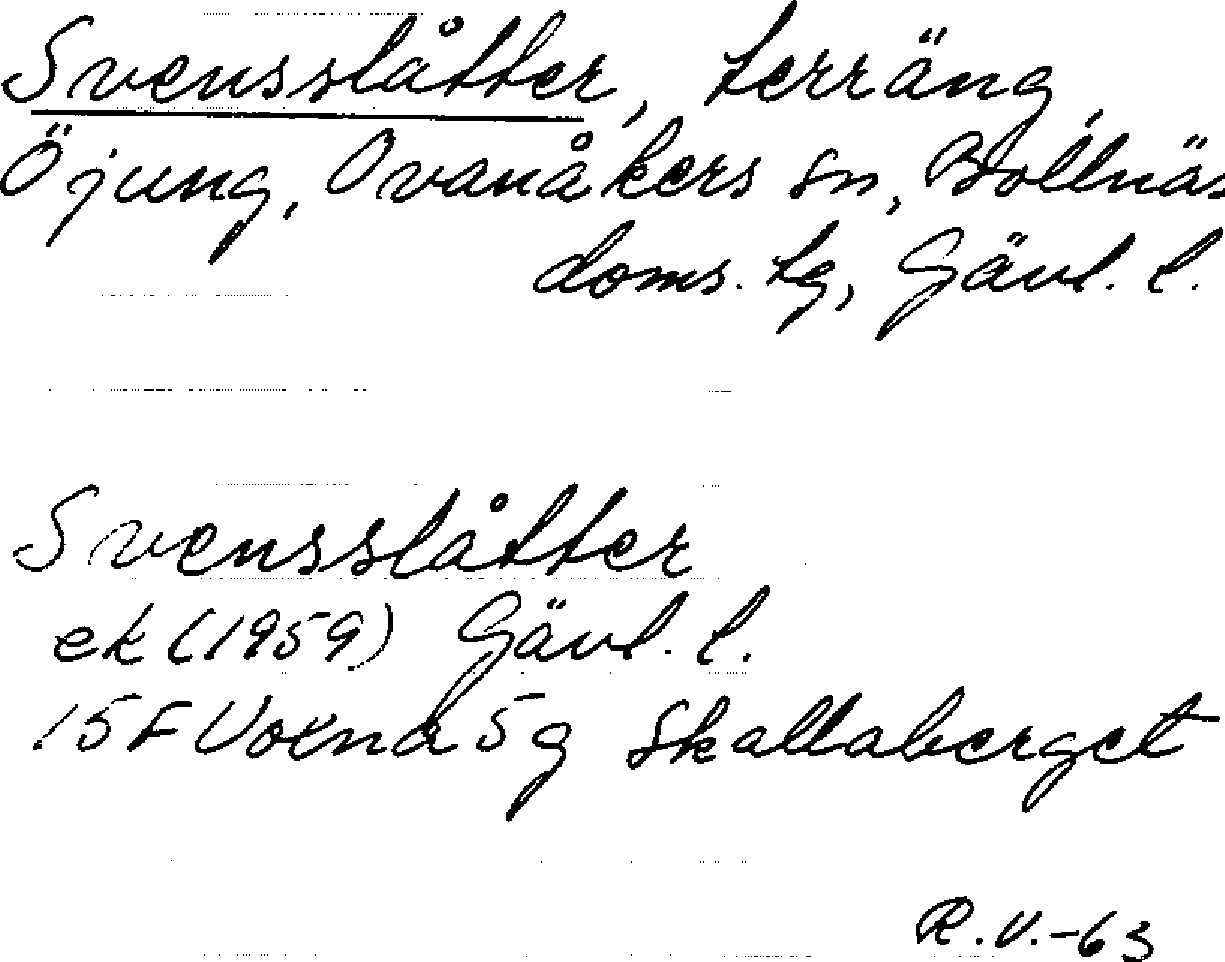 Svensslåtter, terräng,
Öjung, Ovanåkers sn, Bollnäs
doms. tg, Gävl. l.
Svensslåtter
ek (1959) Gävl. l.
15F Voxna 5g Skallaberget
R.V.-63